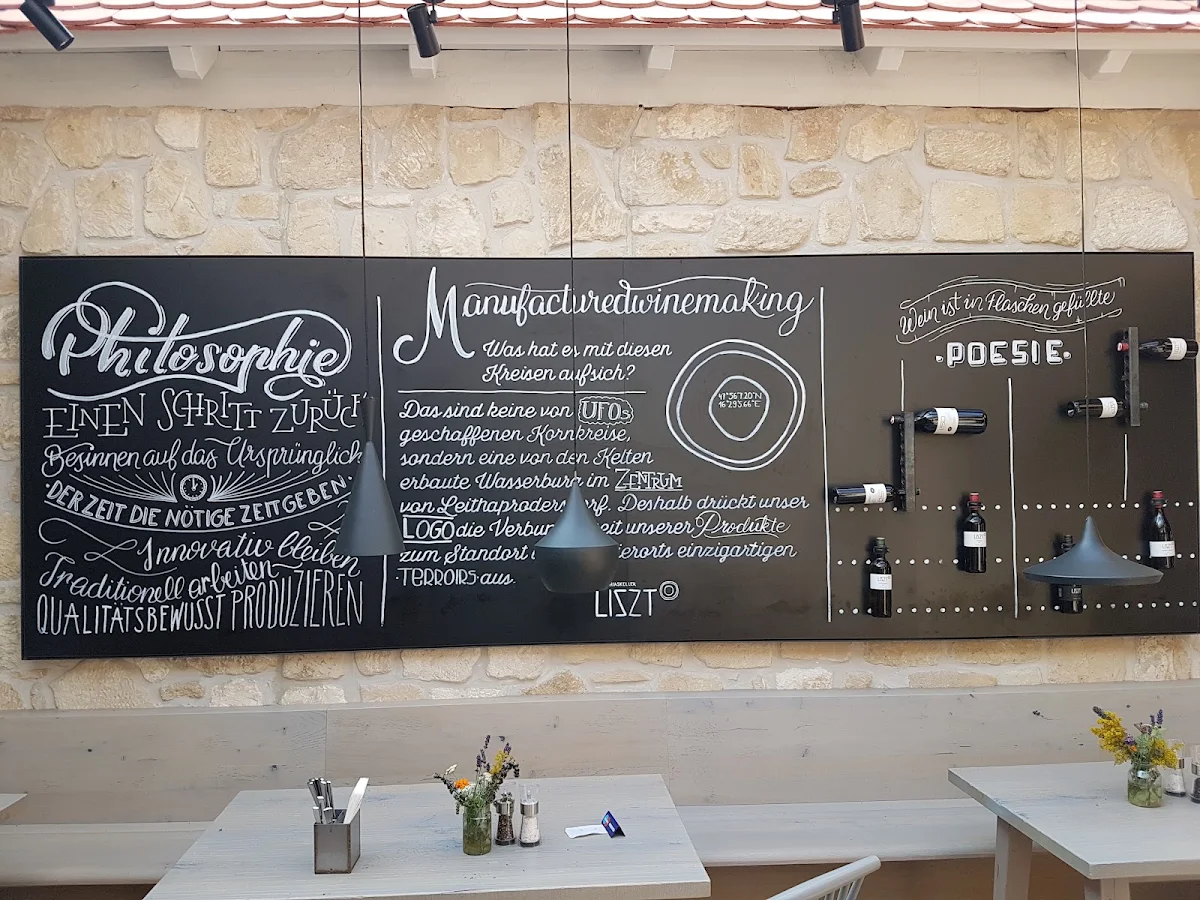 Philosophie
EINEN SCHRITT ZURÜCK
Besinnen auf das Ursprünglich
·DER ZEIT DIE NÖTIGE ZEIT GEBEN·
Innovativ bleiben
Traditionell arbeiten
QUALITÄTSBEWUSST PRODUZIEREN
Manufacturedwinemaking
Was hat es mit diesen
Kreisen aufsich?
Das sind keine von UFOs
geschaffenen Kornkreise,
sondern eine von den Kelten
erbaute Wasserburg im ZENTRUM
von Leithaprodersdorf. Deshalb drückt unser
LOGO die Verbundenheit unserer Produkte
zum Standort ierorts einzigartigen
·TERROIRS aus.
47°56'7.20"N
16°29'5.66"E
LISZT
Wein ist in Flaschen gefüllte
·POESIE·